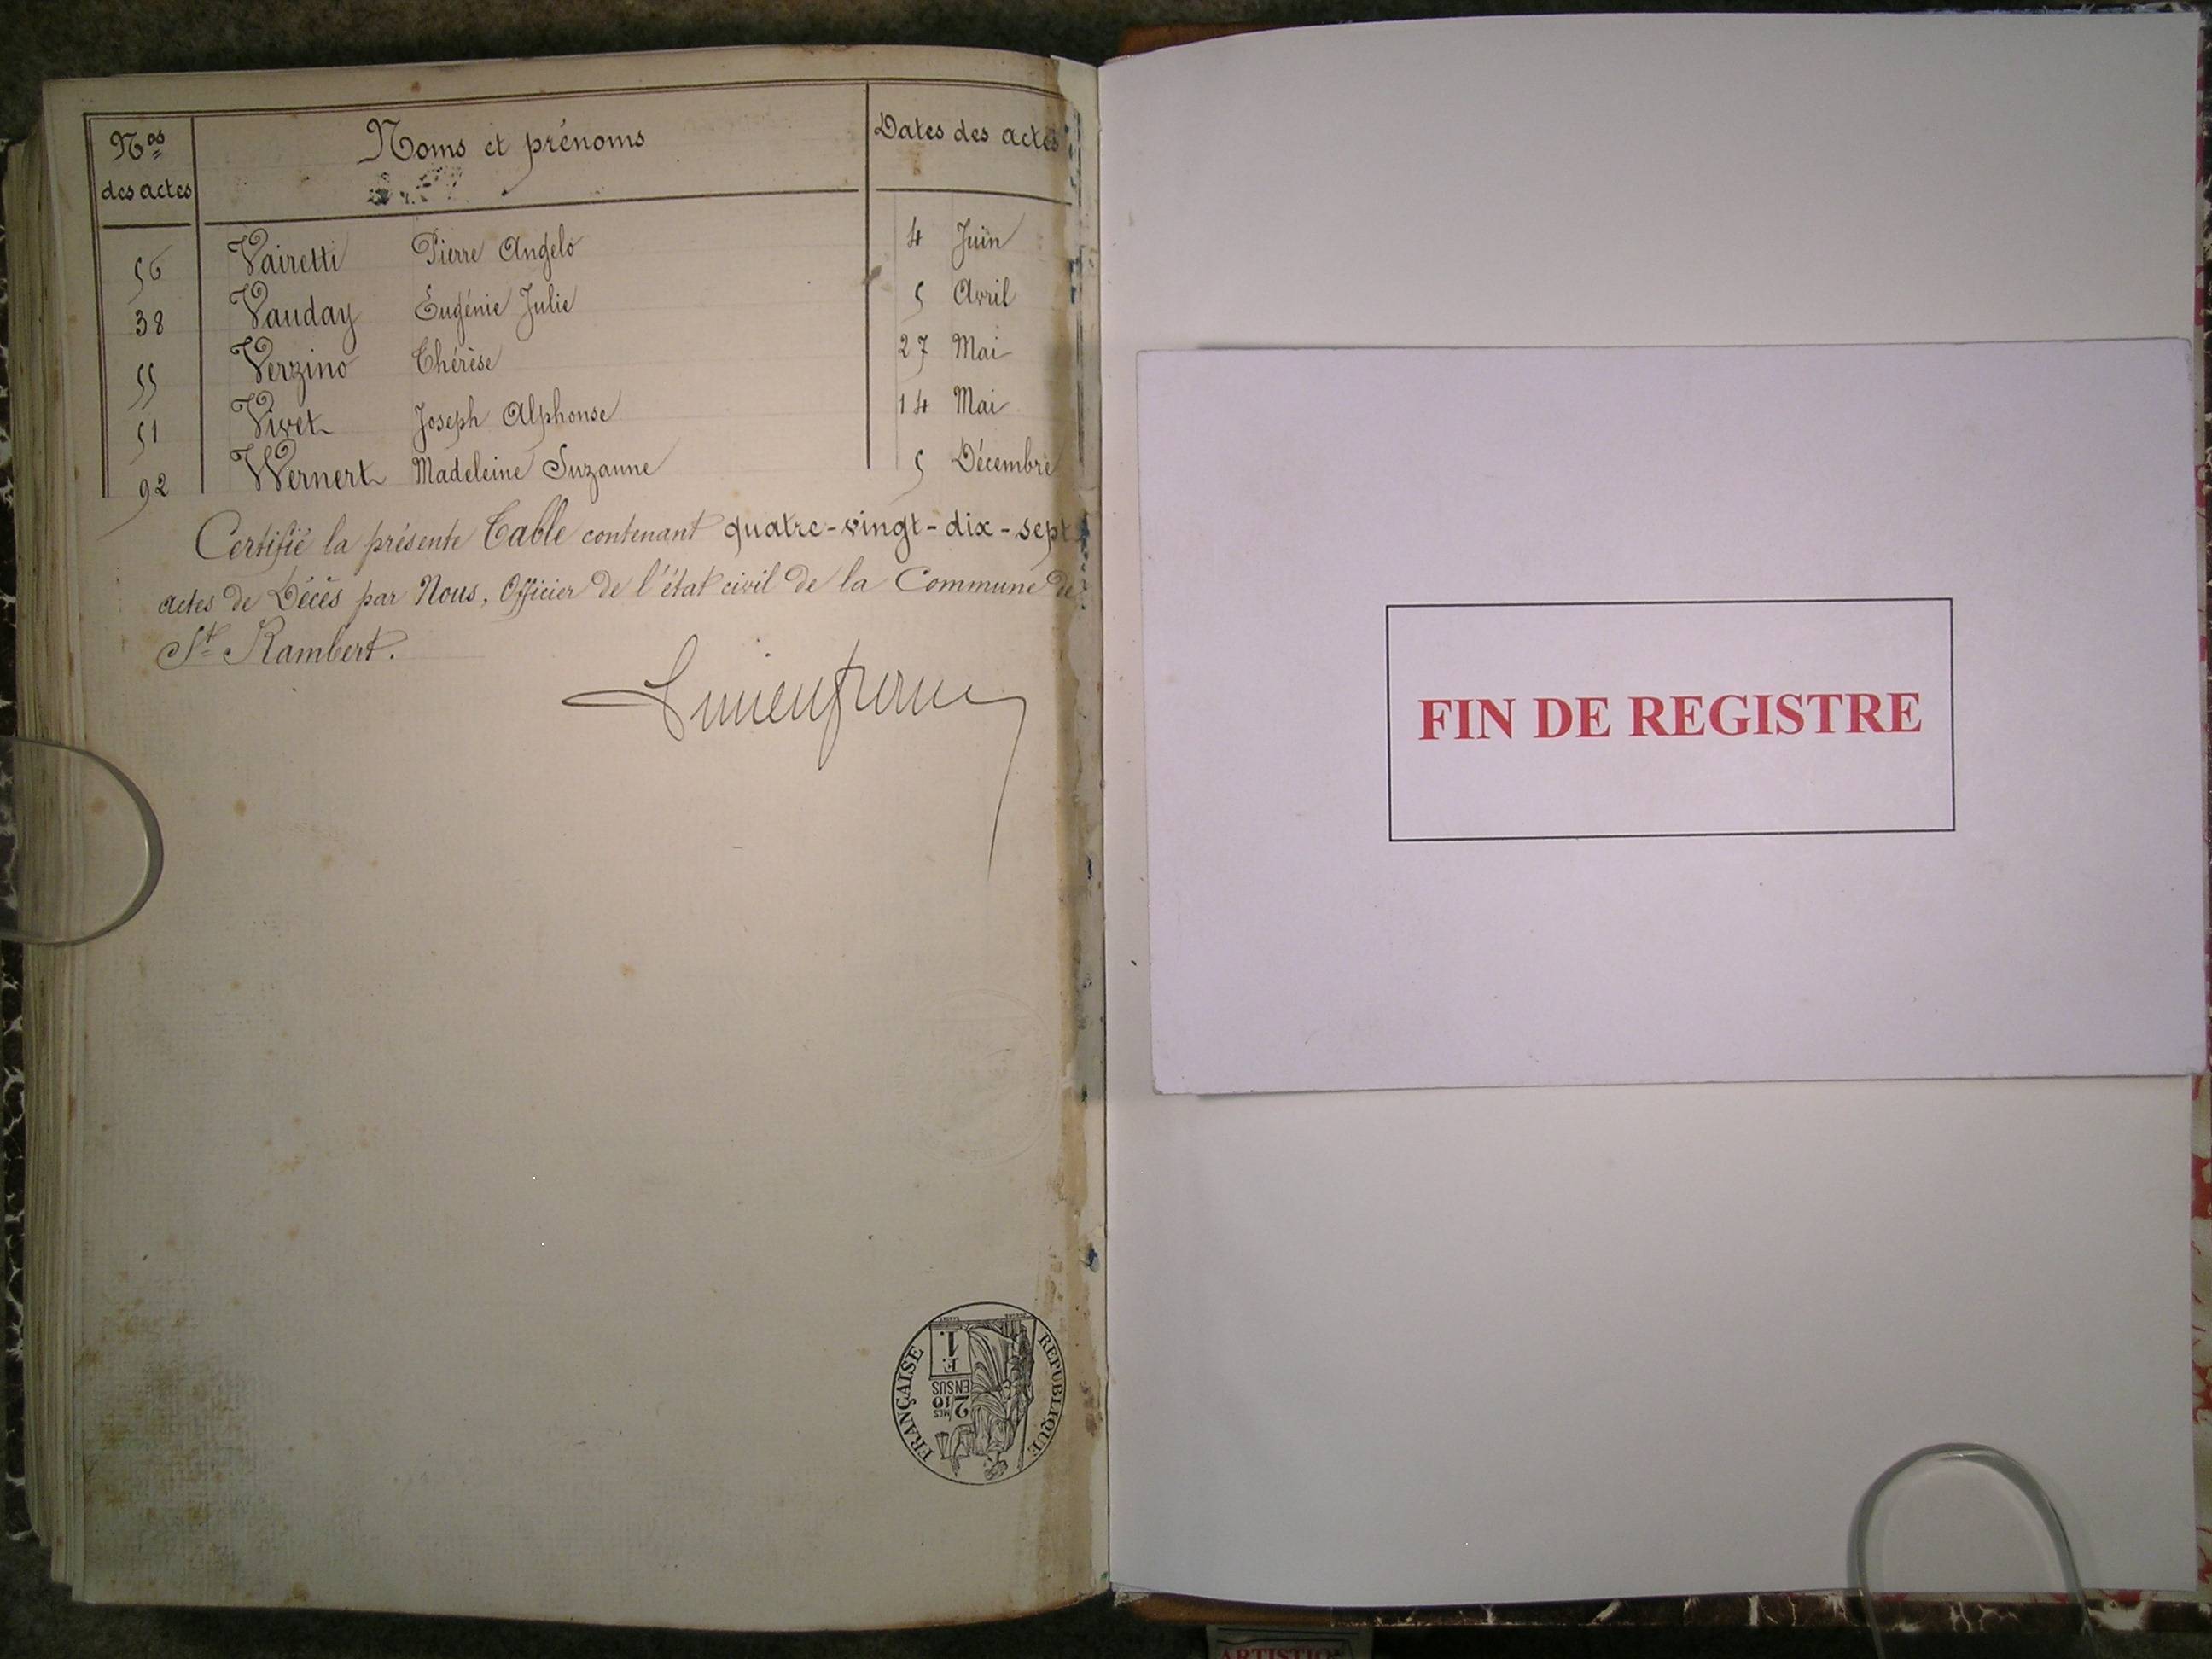 Nos des actes Noms et prénoms Dates des actes
56 Vairetti Pierre Angelo 4 Juin
38 Vauday Eugénie Julie 5 Avril
55 Verzino Thérèse 27 Mai
51 Vivet Joseph Alphonse 14 Mai
92 Wernert Madeleine Suzanne 5 Décembre
Certifié la présente Table contenant quatre-vingt-dix-sept
actes de Décès par Nous, Officier de l'état civil de la Commune de
St Rambert.
REPUBLIQUE FRANÇAISE
1 F.
2/10 MES
EN SUS
FIN DE REGISTRE
ARTISTIQ